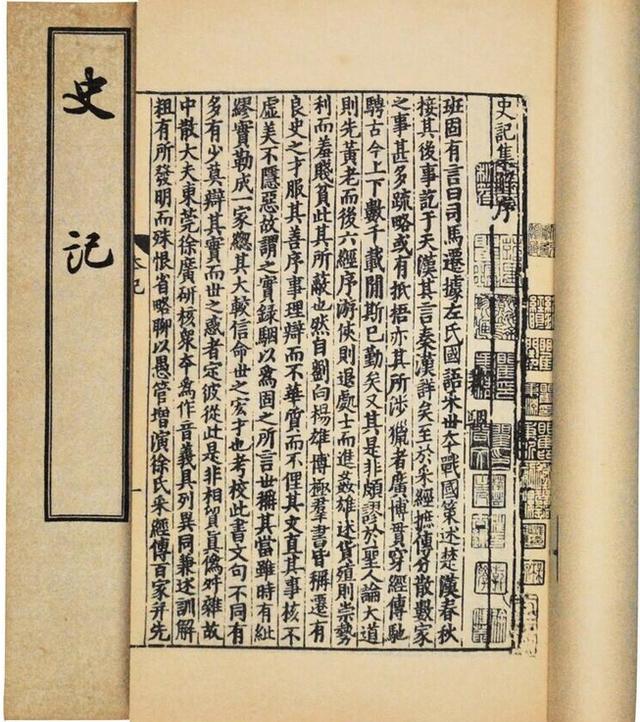 史記集解序
班固有言曰司馬遷據左氏國語采世本戰國策述楚漢春秋
接其後事訖于天漢其言秦漢詳矣至於采經摭傳分散數家
之事甚多疏略或有抵梧亦其所涉獵者廣博貫穿經傳馳
騁古今上下數千載閒斯已勤矣又其是非頗謬於聖人論大道
則先黃老而後六經序游俠則退處士而進姦雄述貨殖則崇勢
利而羞賤貧此其所蔽也然自劉向楊雄博極羣書皆稱遷有
良史之才服其善序事理辯而不華質而不俚其文直其事核不
虛美不隱惡故謂之實録駰以爲固之所言世稱其當雖時有紕
繆實勒成一家總其大較信命世之宏才也考校此書文句不同有
多有少莫辯其實而世之惑者定彼從此是非相貿眞僞舛雜故
中散大夫東莞徐廣研核衆夲爲作音義具列異同兼述訓解
粗有所發明而殊恨省略聊以愚管增演徐氏采經傳百家并先
史記